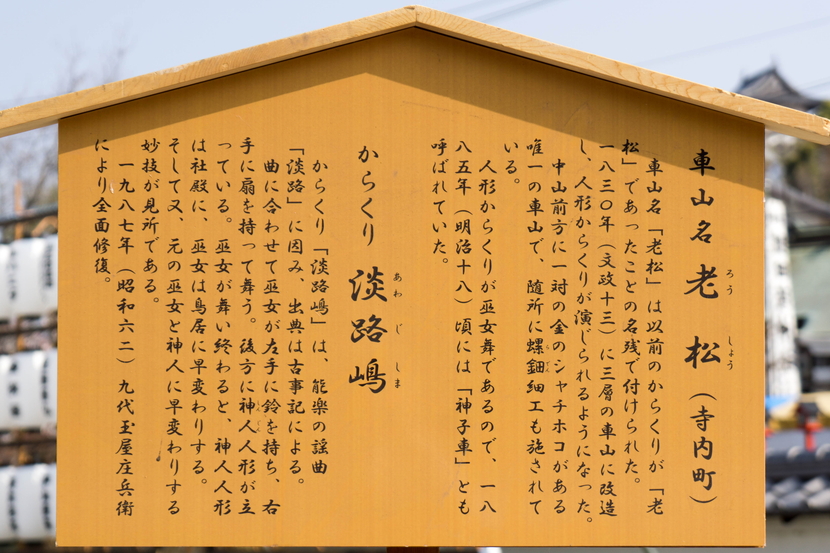 車山名 老松（寺内町）
ろう しょう
車山名「老松」は以前のからくりが「老
松」であったことの名残で付けられた。
一八三〇年（文政十三）に三層の車山に改造
し、人形からくりが演じられるようになった。
中山前方に一対の金のシャチホコがある
唯一の車山で、随所に螺鈿細工も施されて
いる。
人形からくりが巫女舞であるので、一八
八五年（明治十八）頃には「神子車」とも
呼ばれていた。
からくり 淡路嶋
あわ じ しま
からくり「淡路嶋」は、能楽の謡曲
「淡路」に因み、出典は古事記による。
曲に合わせて巫女が左手に鈴を持ち、右
手に扇を持って舞う。後方に神人人形が立
っている。巫女が舞い終わると、神人人形
は社殿に、巫女は鳥居に早変わりする。
そして又、元の巫女と神人に早変わりする
妙技が見所である。
一九八七年（昭和六二）九代玉屋庄兵衛
により全面修復。